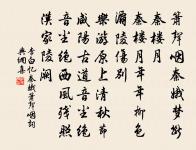 簫聲咽秦娥夢斷
秦樓月
秦樓月年年柳色
灞陵傷別
樂游原上清秋節
咸陽古道音塵絕
音塵絕西風殘照
漢家陵闕
李白憶秦娥簫聲咽詞
典網集